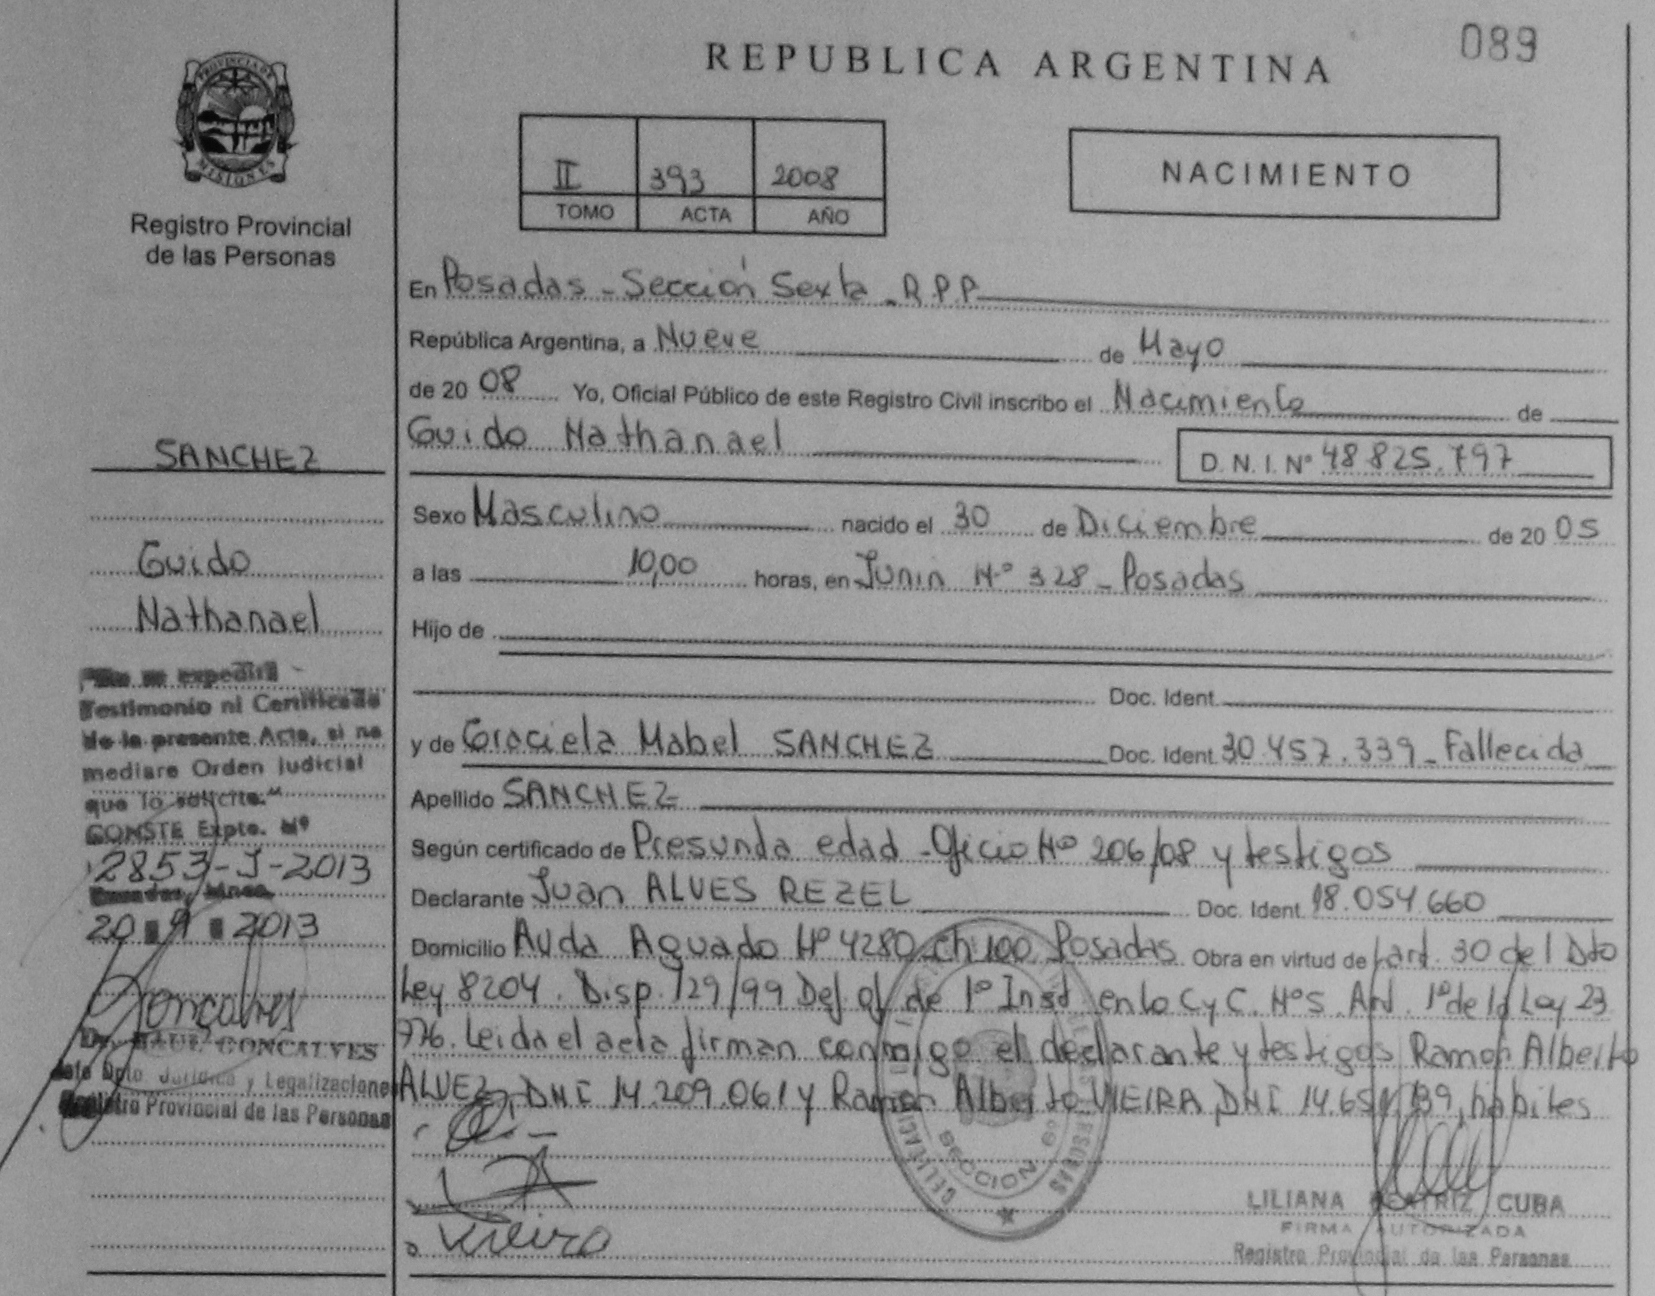 089
REPUBLICA ARGENTINA
PROVINCIA DE
MISIONES
Registro Provincial
de las Personas
II 393 2008
TOMO ACTA AÑO
NACIMIENTO
En Posadas - Sección Sexta - R.P.P.
República Argentina, a Nueve de Mayo
de 20 08 Yo, Oficial Público de este Registro Civil inscribo el Nacimiento de
Guido Nathanael
D. N. I. Nº 48 825.797
Sexo Masculino nacido el 30 de Diciembre de 20 05
a las 10,00 horas, en Junin Nº 328 - Posadas
Hijo de
Doc. Ident.
y de Graciela Mabel SANCHEZ Doc. Ident. 30.457.339 - Fallecida
Apellido SANCHEZ
Según certificado de Presunda edad - Oficio Nº 206/08 y testigos
Declarante Juan ALVES REZEL Doc. Ident. 18.054.660
Domicilio Avda Aguado Nº 4280 ch 100 Posadas. Obra en virtud de art. 30 del Dto
Ley 8204. Disp. 129/99 Def. of. de 1º Inst en lo C y C. Nº 5. Art. 1º de la Ley 23
776. Leida el acta firman conmigo el declarante y testigos Ramon Alberto
ALVEZ, DNI 14.209.061 y Ramon Alberto VIEIRA, DNI 14.651.139, habiles
Vieira
DELEGACION
SECCION 6º
LILIANA BEATRIZ CUBA
FIRMA AUTORIZADA
Registro Provincial de las Personas
SANCHEZ
Guido
Nathanael
"No se expedirá
Testimonio ni Certificado
de la presente Acta, si no
mediare Orden judicial
que lo solicite."
CONSTE Expte. Nº
2853-J-2013
Posadas, Mnes.
20 9 2013
Goncalves
Dr. RAUL GONCALVES
Jefe Dpto. Jurídica y Legalizaciones
Registro Provincial de las Personas